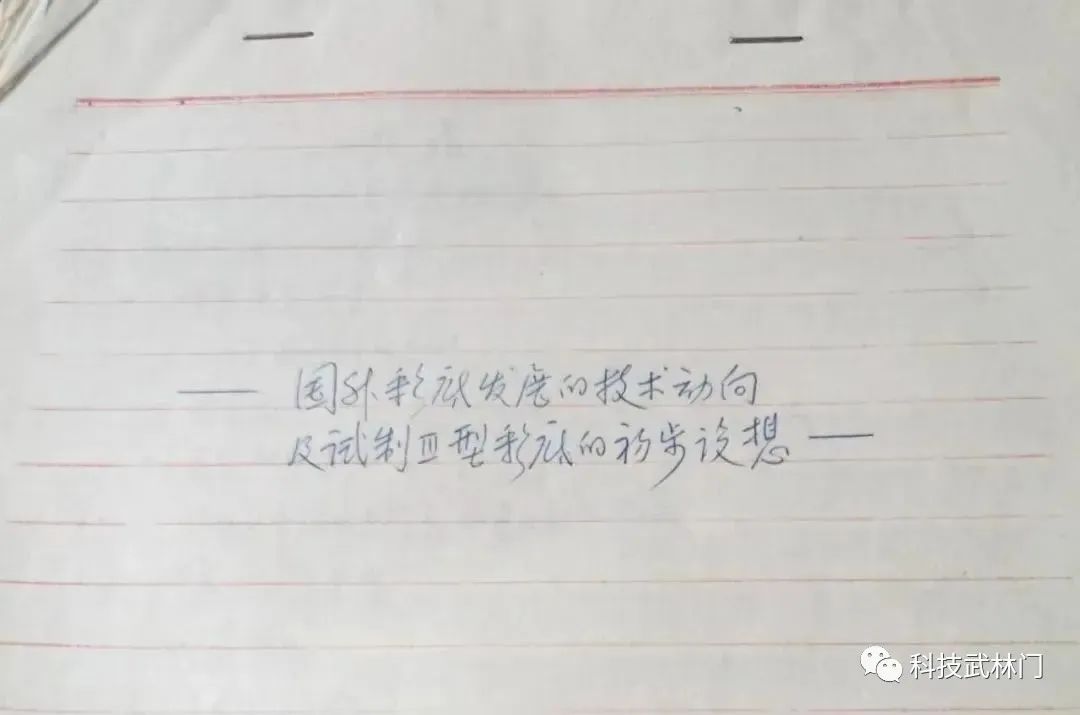 —— 国外彩底发展的技术动向
及试制Ⅲ型彩底的初步设想 ——
科技武林门